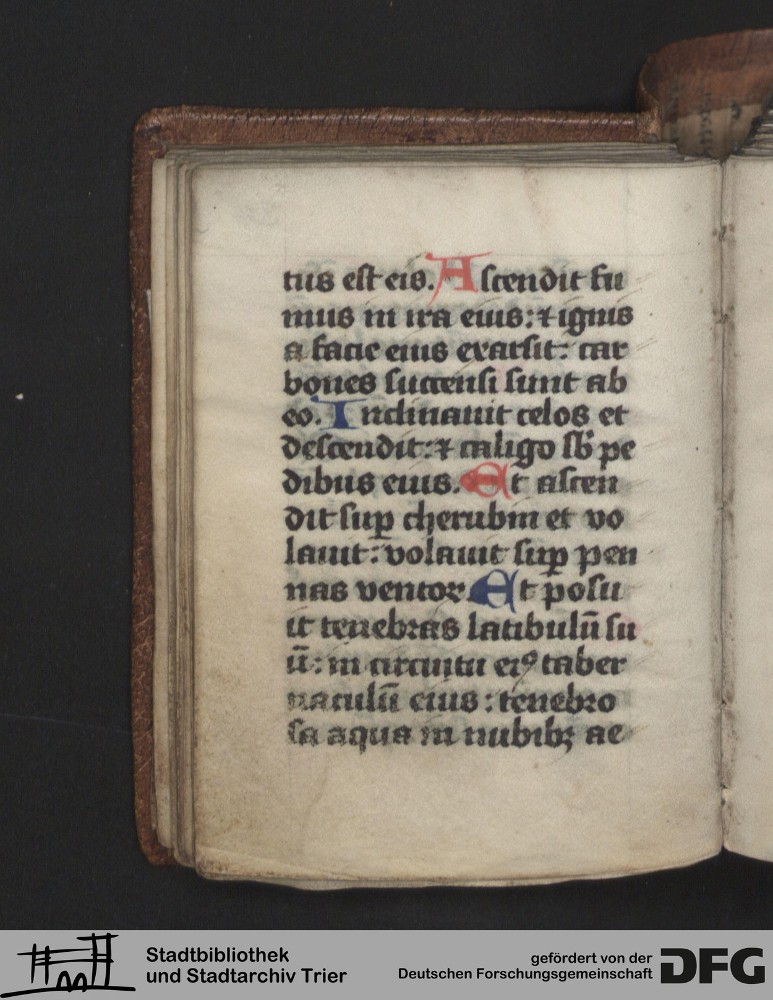 tus est eis. Ascendit fu
mus in ira eius: ⁊ ignis
a facie eius exarsit: car
bones succensi sunt ab
eo. Inclinauit celos et
descendit: ⁊ caligo sb̄ pe
dibus eius. Et ascen
dit suꝑ cherubin et vo
lauit: volauit suꝑ pen
nas ventoꝝ. Et posu
it tenebras latibulū su
ū: in circuitu eiꝰ taber
naculū eius: tenebro
sa aqua in nubibꝫ ae
Stadtbibliothek
und Stadtarchiv Trier
gefördert von der
Deutschen Forschungsgemeinschaft
DFG